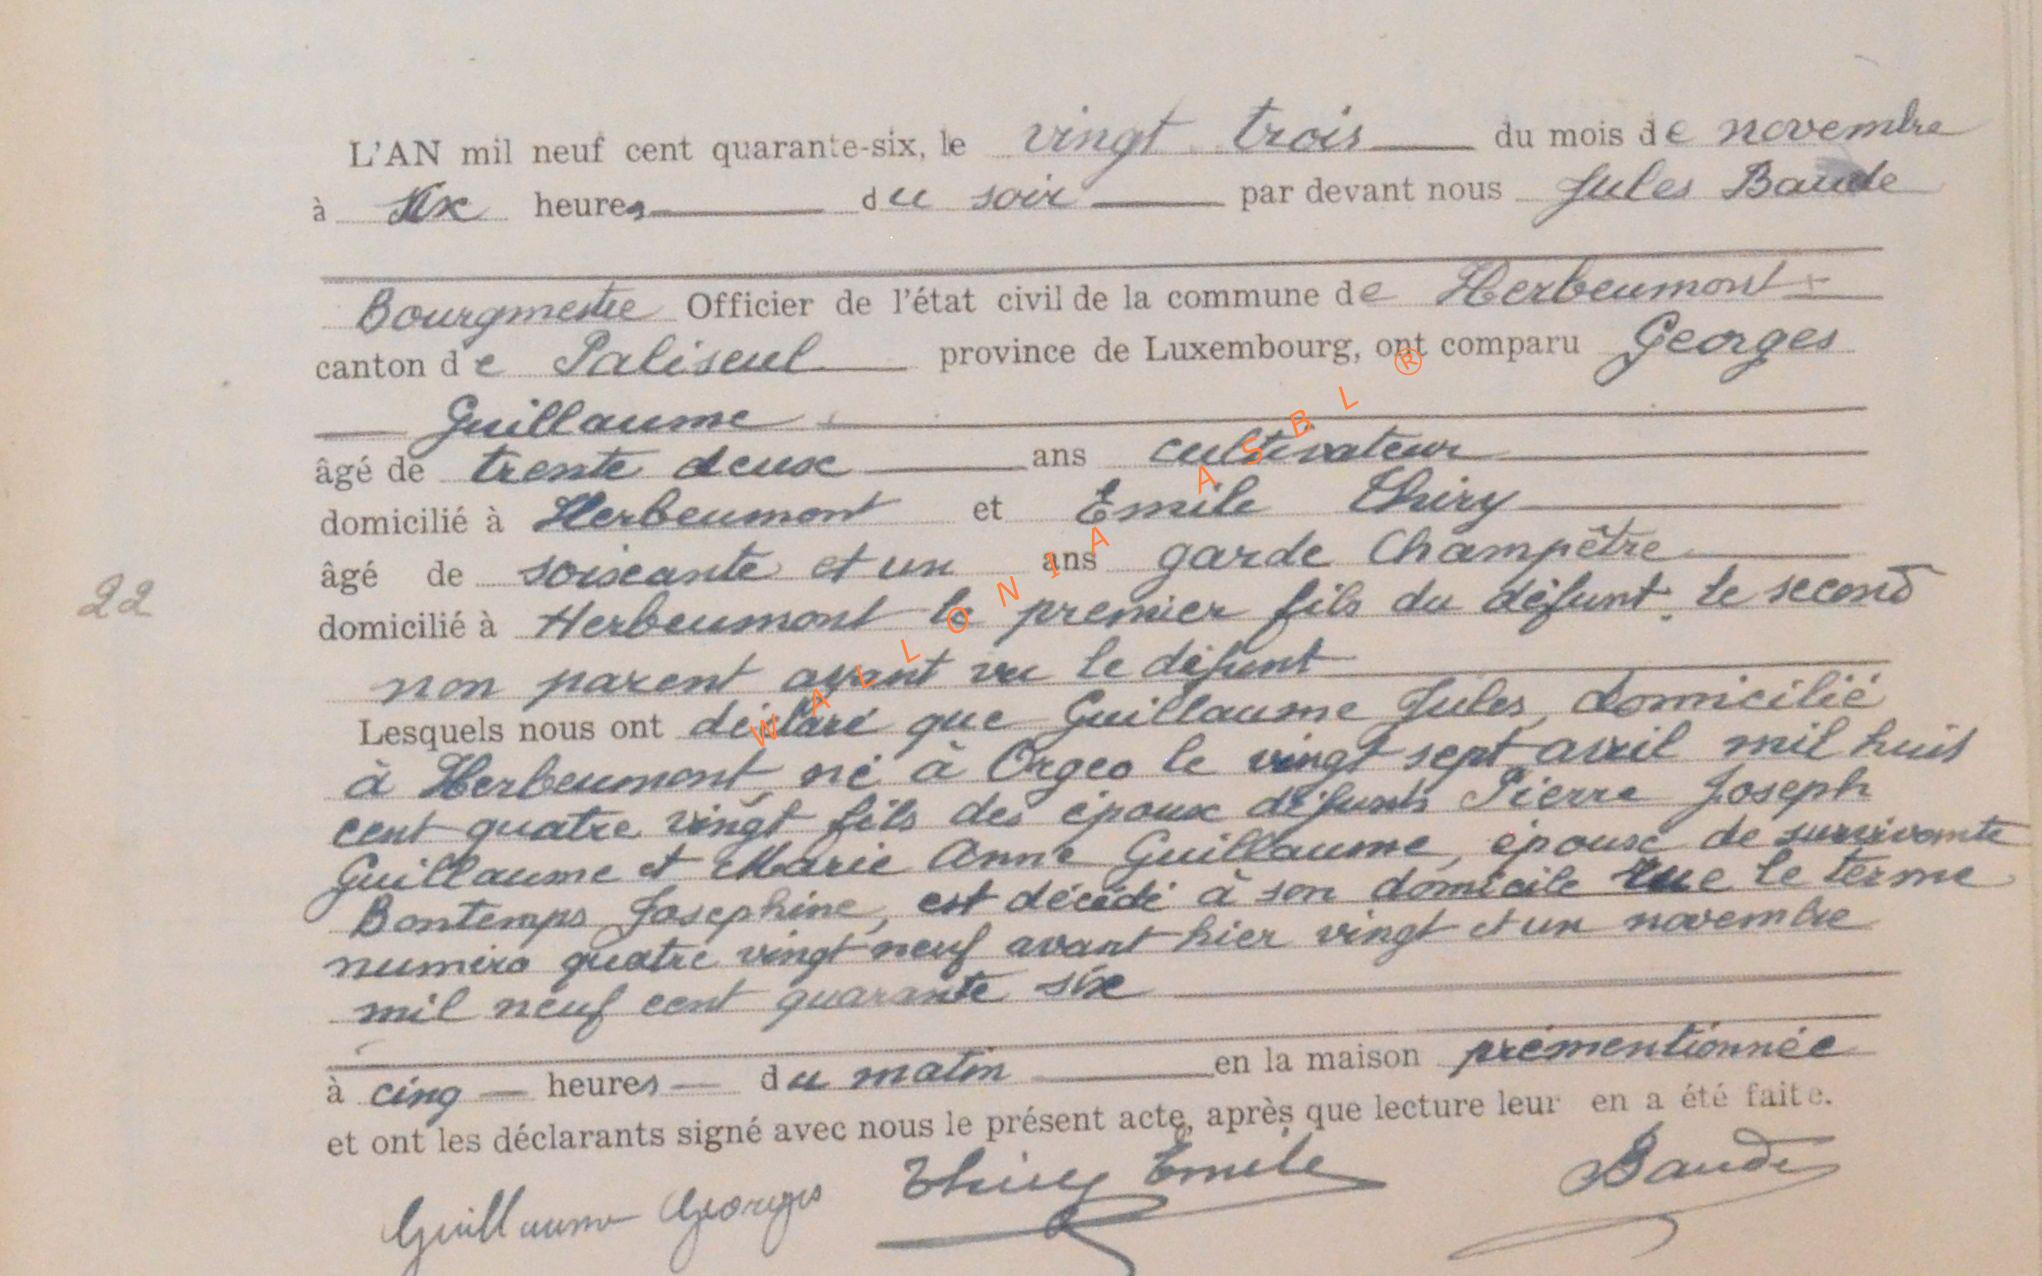 L'AN mil neuf cent quarante-six, le vingt trois du mois de novembre
à six heures du soir par devant nous Jules Baude
Bourgmestre Officier de l'état civil de la commune de Herbeumont
canton de Paliseul province de Luxembourg, ont comparu Georges
Guillaume
âgé de trente deux ans cultivateur
domicilié à Herbeumont et Emile Thiry
âgé de soixante et un ans garde Champêtre
22
domicilié à Herbeumont le premier fils du défunt, le second
non parent ayant vu le défunt
Lesquels nous ont déclaré que Guillaume Jules, domicilié
à Herbeumont, né à Orgeo le vingt sept avril mil huit
cent quatre vingt fils des époux défunts Pierre Joseph
Guillaume et Marie Anne Guillaume, époux de survivante
Bontemps Josephine, est décédé à son domicile rue le terme
numéro quatre vingt neuf avant hier vingt et un novembre
mil neuf cent quarante six
à cinq heures du matin en la maison prémentionnée
et ont les déclarants signé avec nous le présent acte, après que lecture leur en a été faite.
Guillaume Georges Thiry Emile Baude
WALLONIA ASBL ®